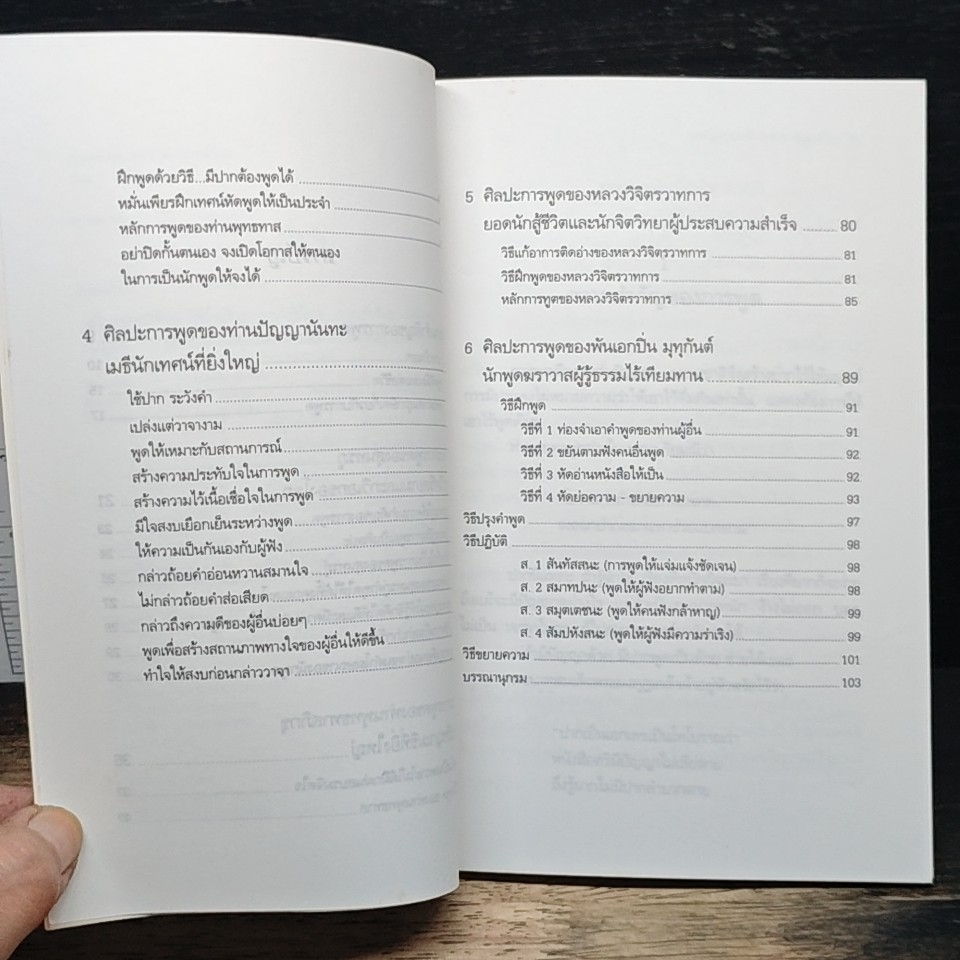 ฝึกพูดด้วยวิธี...มีปากต้องพูดได้
หมั่นเพียรฝึกเทศน์หัดพูดให้เป็นประจำ
หลักการพูดของท่านพุทธทาส
อย่าปิดกั้นตนเอง จงเปิดโอกาสให้ตนเอง
ในการเป็นนักพูดให้จงได้
4 ศิลปะการพูดของท่านปัญญานันทะ
เมธีนักเทศน์ที่ยิ่งใหญ่
ใช้ปาก ระวังคำ
เปล่งแต่วาจางาม
พูดให้เหมาะกับสถานการณ์
สร้างความประทับใจในการพูด
สร้างความไว้เนื้อเชื่อใจในการพูด
มีใจสงบเยือกเย็นระหว่างพูด
ให้ความเป็นกันเองกับผู้ฟัง
กล่าวถ้อยคำอ่อนหวานสมานใจ
ไม่กล่าวถ้อยคำส่อเสียด
กล่าวถึงความดีของผู้อื่นบ่อยๆ
พูดเพื่อสร้างสถานภาพทางใจของผู้อื่นให้ดีขึ้น
ทำใจให้สงบก่อนกล่าววาจา
5 ศิลปะการพูดของหลวงวิจิตรวาทการ
ยอดนักสู้ชีวิตและนักจิตวิทยาผู้ประสบความสำเร็จ 80
วิธีแก้อาการติดอ่างของหลวงวิจิตรวาทการ 81
วิธีฝึกพูดของหลวงวิจิตรวาทการ 81
หลักการทูตของหลวงวิจิตรวาทการ 85
6 ศิลปะการพูดของพันเอกปิ่น มุทุกันต์
นักพูดฆราวาสผู้รู้ธรรมไร้เทียมทาน 89
วิธีฝึกพูด 91
วิธีที่ 1 ท่องจำเอาคำพูดของท่านผู้อื่น 91
วิธีที่ 2 ขยันตามฟังคนอื่นพูด 92
วิธีที่ 3 หัดอ่านหนังสือให้เป็น 92
วิธีที่ 4 หัดย่อความ - ขยายความ 93
วิธีปรุงคำพูด 97
วิธีปฏิบัติ 98
ส. 1 สันทัสสนะ (การพูดให้แจ่มแจ้งชัดเจน) 98
ส. 2 สมาทปนะ (พูดให้ผู้ฟังอยากทำตาม) 98
ส. 3 สมุตเตชนะ (พูดให้คนฟังกล้าหาญ) 99
ส. 4 สัมปหังสนะ (พูดให้ผู้ฟังมีความร่าเริง) 99
วิธีขยายความ 101
บรรณานุกรม 103